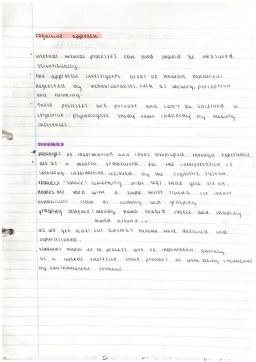 cognitive approach
• internal mental processes can and should be measured
scientifically.
• the approach investigates areas of human behaviour
neglected by behaviourists, such as memory, perception
and thinking.
• these processes are private and can't be observed so
cognitive psychologists study them indirectly by making
inferences.
schemas
packages of information and ideas developed through experience.
act as a mental framework for the interpretation of
incoming information received by the cognitive system.
babies are born with a simple motor schema for innate
behaviours such as sucking and grasping.
grasping schema: moving hand toward object and shaping
hand around it.
as we get older, our schemas become more detailed and
sophisticated.
schemas allow us to process lots of information quickly
as a mental shortcut that prevents us from being overwhelmed
by environmental stimuli